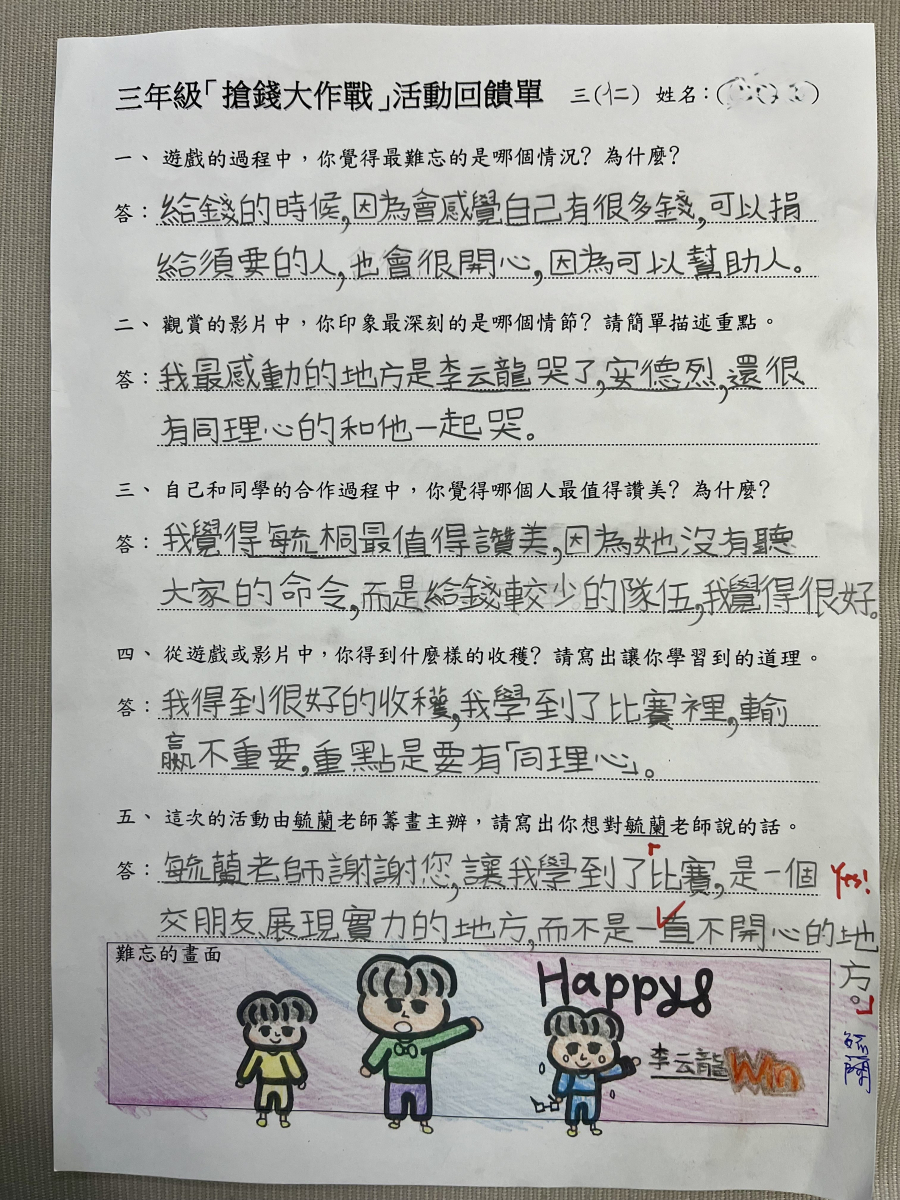 三年級「搶錢大作戰」活動回饋單 三(仁) 姓名：( )
一、遊戲的過程中，你覺得最難忘的是哪個情況？為什麼？
答：給錢的時候，因為會感覺自己有很多錢，可以捐
給須要的人，也會很開心，因為可以幫助人。
二、觀賞的影片中，你印象最深刻的是哪個情節？請簡單描述重點。
答：我最感動的地方是李云龍哭了，安德烈，還很
有同理心的和他一起哭。
三、自己和同學的合作過程中，你覺得哪個人最值得讚美？為什麼？
答：我覺得毓桐最值得讚美，因為她沒有聽
大家的命令，而是給錢較少的隊伍，我覺得很好。
四、從遊戲或影片中，你得到什麼樣的收穫？請寫出讓你學習到的道理。
答：我得到很好的收穫，我學到了比賽裡，輸
贏不重要，重點是要有「同理心」。
五、這次的活動由毓蘭老師籌畫主辦，請寫出你想對毓蘭老師說的話。
答：毓蘭老師謝謝您，讓我學到了「比賽，是一個
交朋友、展現實力的地方，而不是一直不開心的地
方。」
難忘的畫面
Happy
李云龍 Win